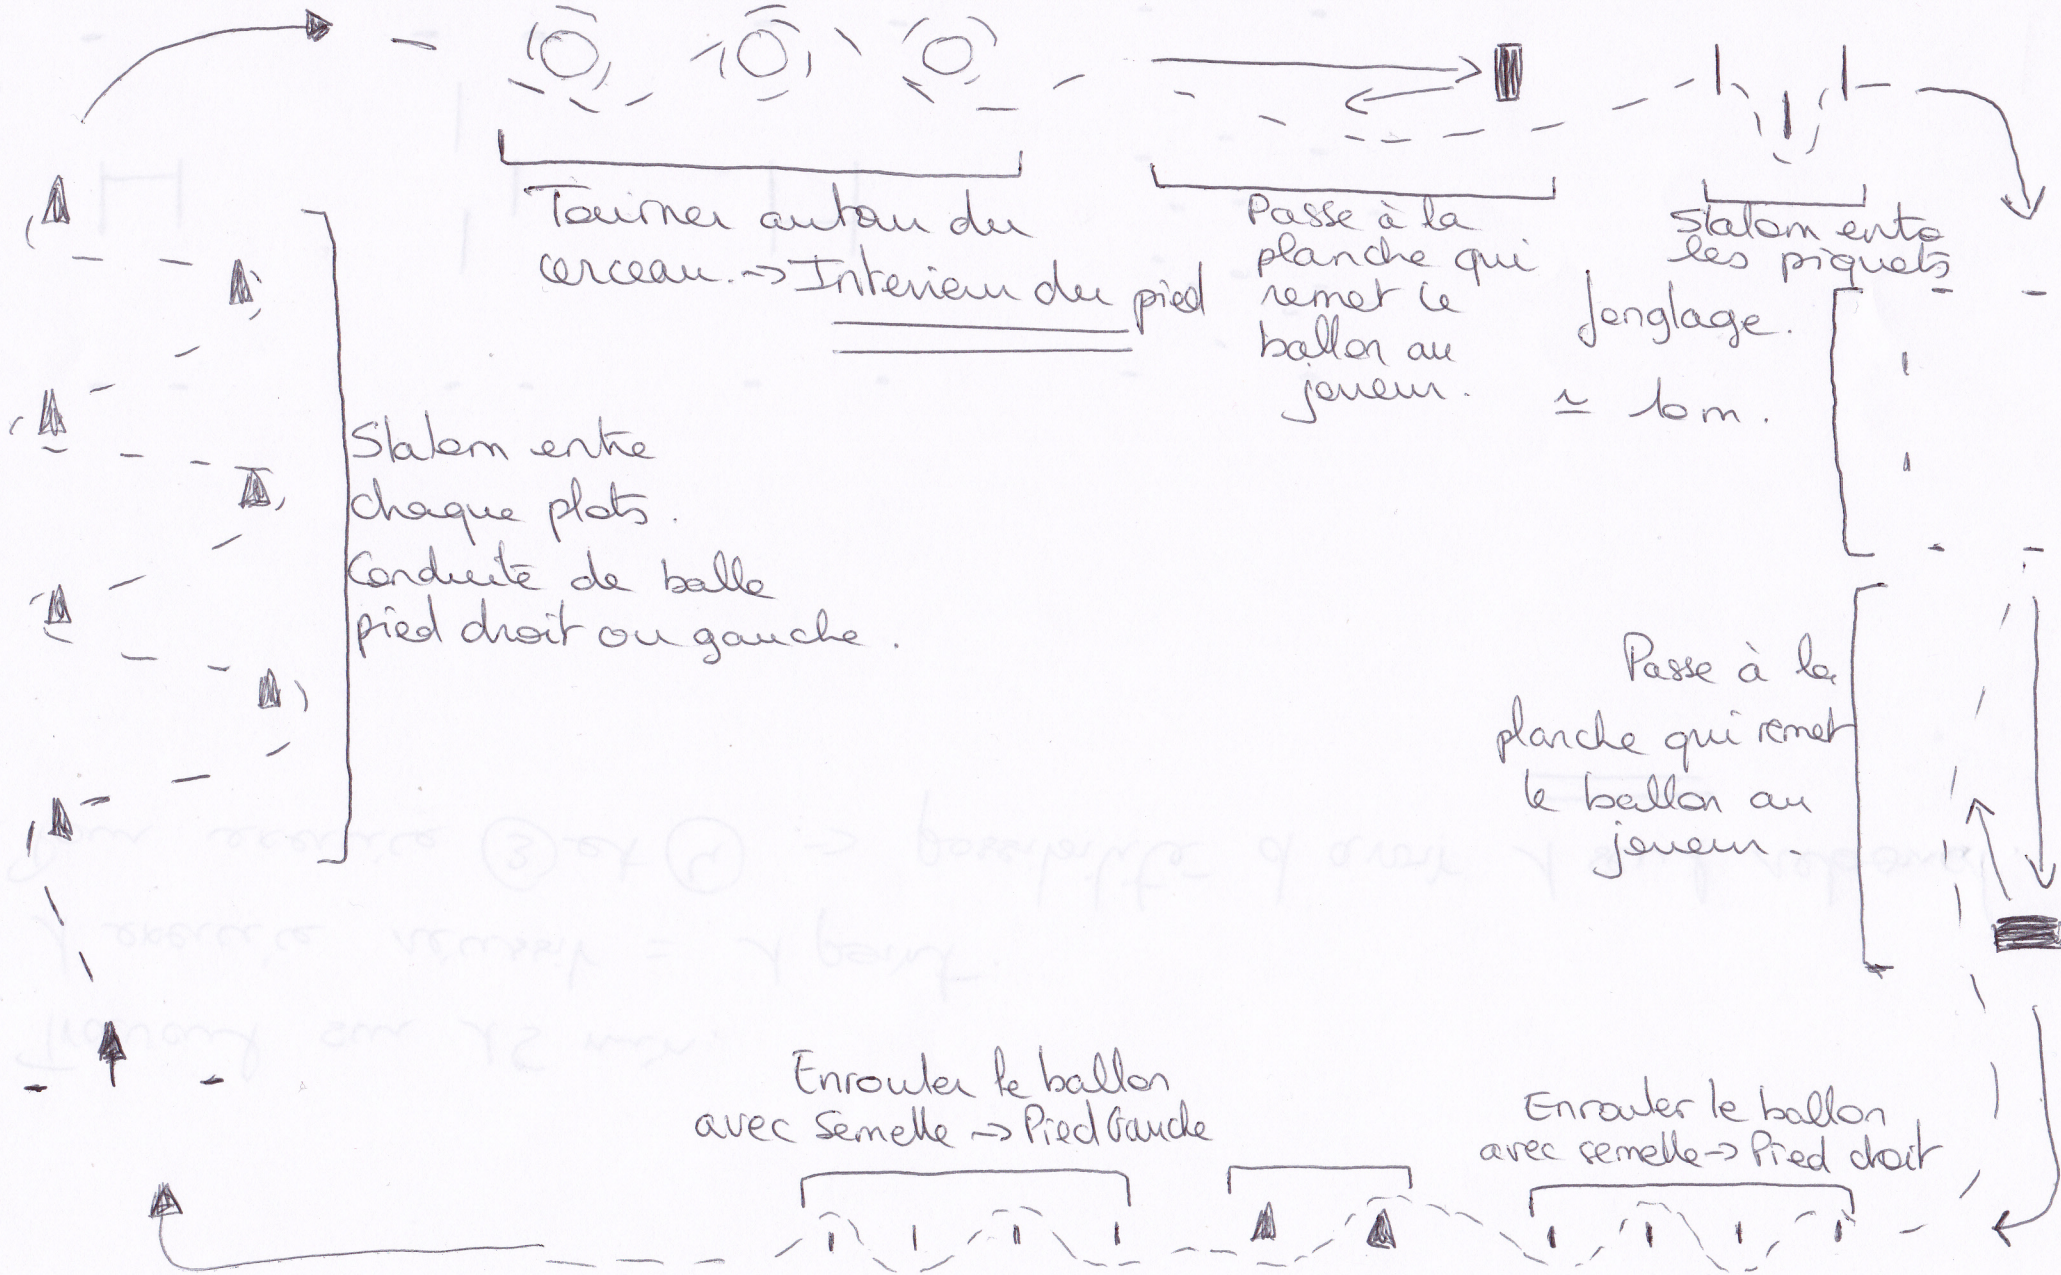 Tourner autour du
cerceau. -> Interieur du pied
Passe à la
planche qui
remet le
ballon au
joueur.
Slalom entre
les piquets
Jonglage.
≃ 10 m.
Slalom entre
chaque plots.
Conduite de balle
pied droit ou gauche.
Passe à la
planche qui remet
le ballon au
joueur.
Enrouler le ballon
avec Semelle -> Pied Gauche
Enrouler le ballon
avec semelle -> Pied droit